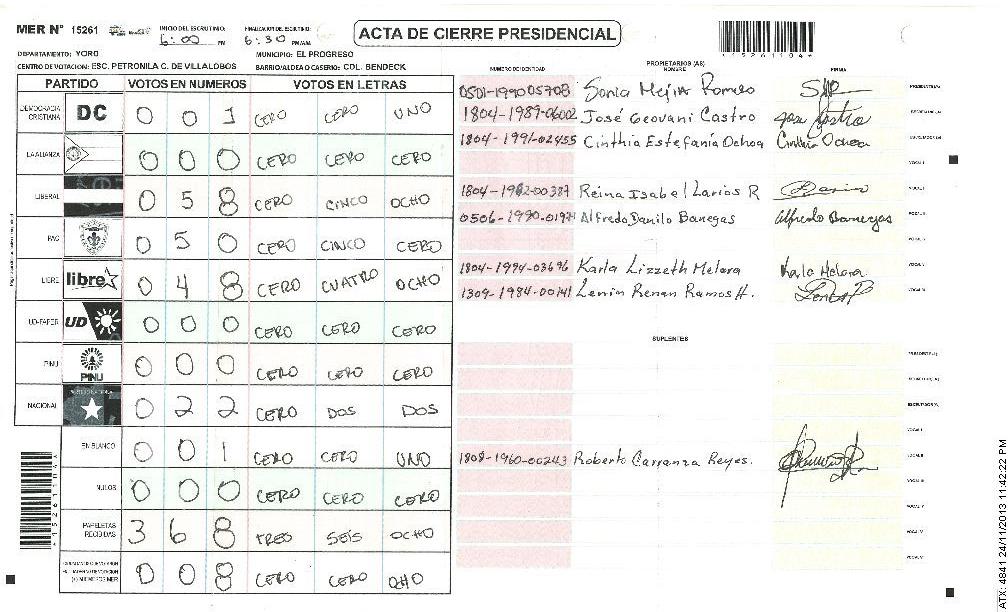 MER N° 15261 INICIO DEL ESCRUTINIO: 6:00 PM FINALIZACION DEL ESCRUTINIO: 6:30 PM/AM
ACTA DE CIERRE PRESIDENCIAL
*15261104*
DEPARTAMENTO: YORO MUNICIPIO: EL PROGRESO
CENTRO DE VOTACION: ESC. PETRONILA C. DE VILLALOBOS BARRIO/ALDEA O CASERIO: COL. BENDECK
PARTIDO VOTOS EN NUMEROS VOTOS EN LETRAS
DEMOCRACIA CRISTIANA DC 0 0 1 CERO CERO UNO
LA ALIANZA 0 0 0 CERO CERO CERO
LIBERAL 0 5 8 CERO CINCO OCHO
PAC 0 5 0 CERO CINCO CERO
LIBRE libre 0 4 8 CERO CUATRO OCHO
UD-FAPER UD 0 0 0 CERO CERO CERO
PINU PINU 0 0 0 CERO CERO CERO
NACIONAL 0 2 2 CERO DOS DOS
EN BLANCO 0 0 1 CERO CERO UNO
NULOS 0 0 0 CERO CERO CERO
PAPELETAS RECIBIDAS 3 6 8 TRES SEIS OCHO
(+) MIEMBROS MER 0 0 8 CERO CERO OHO
PROPIETARIOS (AS)
NUMERO DE IDENTIDAD NOMBRE FIRMA
0501-1990 05708 Sonia Mejia Romero PRESIDENTE(A)
1804-1989-06002 José Geovani Castro Jose Castro SECRETARIO(A)
1804-1991-02455 Cinthia Estefanía Ochoa Cinthia Ochoa ESCRUTADOR(A)
VOCAL I
1804-1982-00387 Reina Isabel Larios R VOCAL II
0506-1990-01971 Alfredo Danilo Banegas Alfredo Banegas VOCAL III
1804-1994-03696 Karla Lizzeth Melara Karla Melara VOCAL V
1309-1984-00141 Lenin Renan Ramos H.
SUPLENTES
PRESIDENTE(A)
SECRETARIO(A)
ESCRUTADOR(A)
VOCAL I
1808-1960-00243 Roberto Carranza Reyes. VOCAL II
VOCAL III
VOCAL IV
VOCAL V
*15261104*
ATX: 4841 24/11/2013 11:42:22 PM